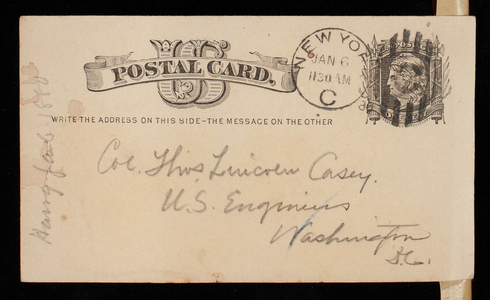 US
POSTAL CARD.
NEW YORK
JAN 6
1130 AM
C
WRITE THE ADDRESS ON THIS SIDE-THE MESSAGE ON THE OTHER
Col. Thos Lincoln Casey.
U.S. Engineers
Washington
D.C.